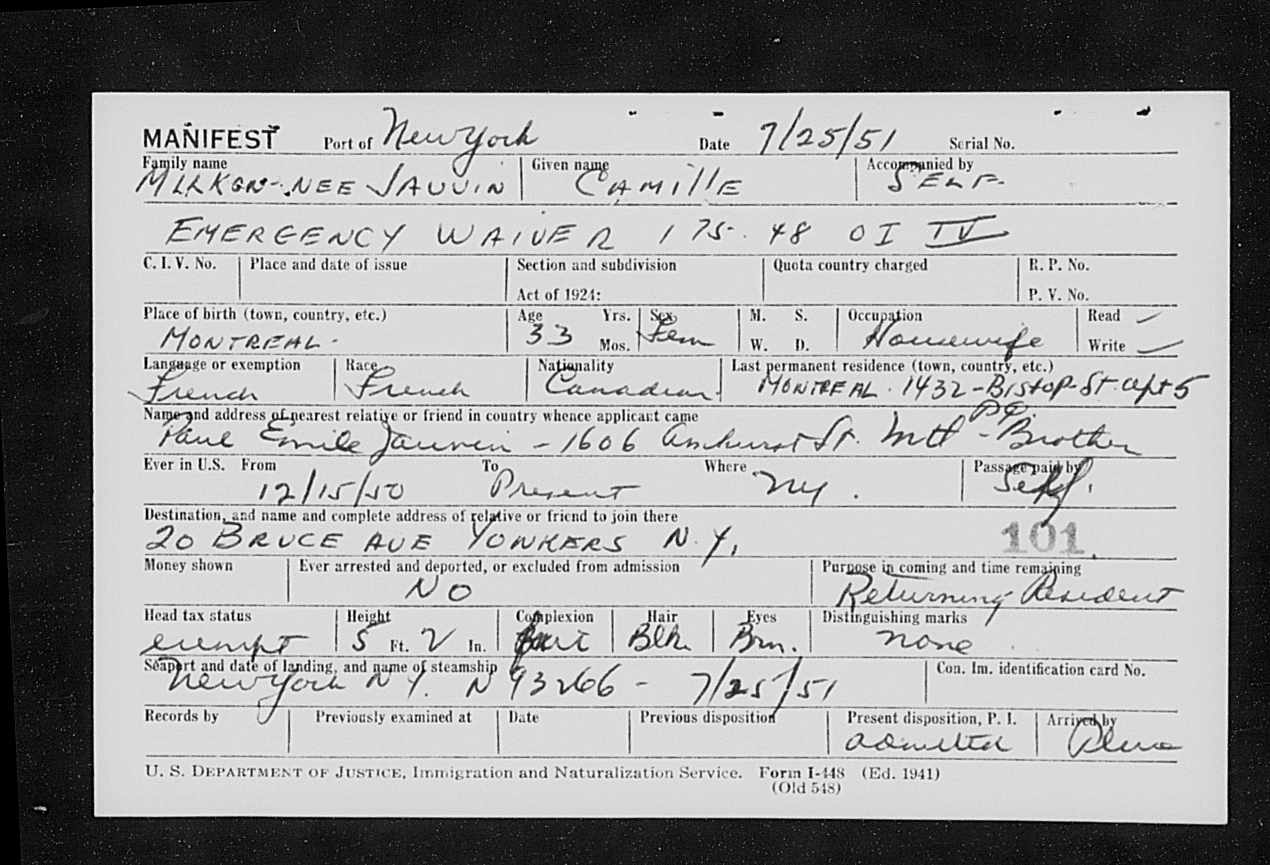 MANIFEST Port of New York Date 7/25/51 Serial No.
Family name Given name Accompanied by
NEE JAUVIN CAMILLE SELF
EMERGENCY WAIVER 175.48 OI IV
C. I. V. No. Place and date of issue Section and subdivision Quota country charged R. P. No.
Act of 1924: P. V. No.
Place of birth (town, country, etc.) Age Yrs. Sex M. S. Occupation Read ✓
MONTREAL 33 Mos. Fem W. D. Housewife Write ✓
Language or exemption Race Nationality Last permanent residence (town, country, etc.)
French French Canadian MONTREAL. 1432-BISHOP-St. apt 5
Name and address of nearest relative or friend in country whence applicant came PQ
Paul Emile Jauvin - 1606 Amhurst St. Mtl - Brother
Ever in U.S. From To Where Passage paid by
12/15/50 Present NY. Self.
Destination, and name and complete address of relative or friend to join there
20 BRUCE AVE YONKERS N.Y. 101
Money shown Ever arrested and deported, or excluded from admission Purpose in coming and time remaining
NO Returning Resident
Head tax status Height Complexion Hair Eyes Distinguishing marks
exempt 5 Ft. 2 In. Blk. Brn. none
Seaport and date of landing, and name of steamship Con. Im. identification card No.
New York N.Y. N 93266 - 7/25/51
Records by Previously examined at Date Previous disposition Present disposition, P. I. Arrived by
admitted Plane
U. S. DEPARTMENT OF JUSTICE, Immigration and Naturalization Service. Form I-448 (Ed. 1941)
(Old 548)